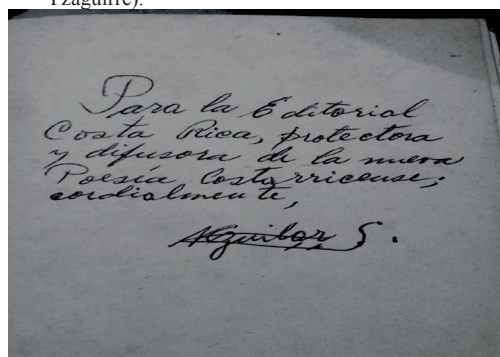 Yzaguirre).
Para la Editorial
Costa Rica, protectora
y difusora de la nueva
Poesía Costarricense;
cordialmente,
Aguilar S.